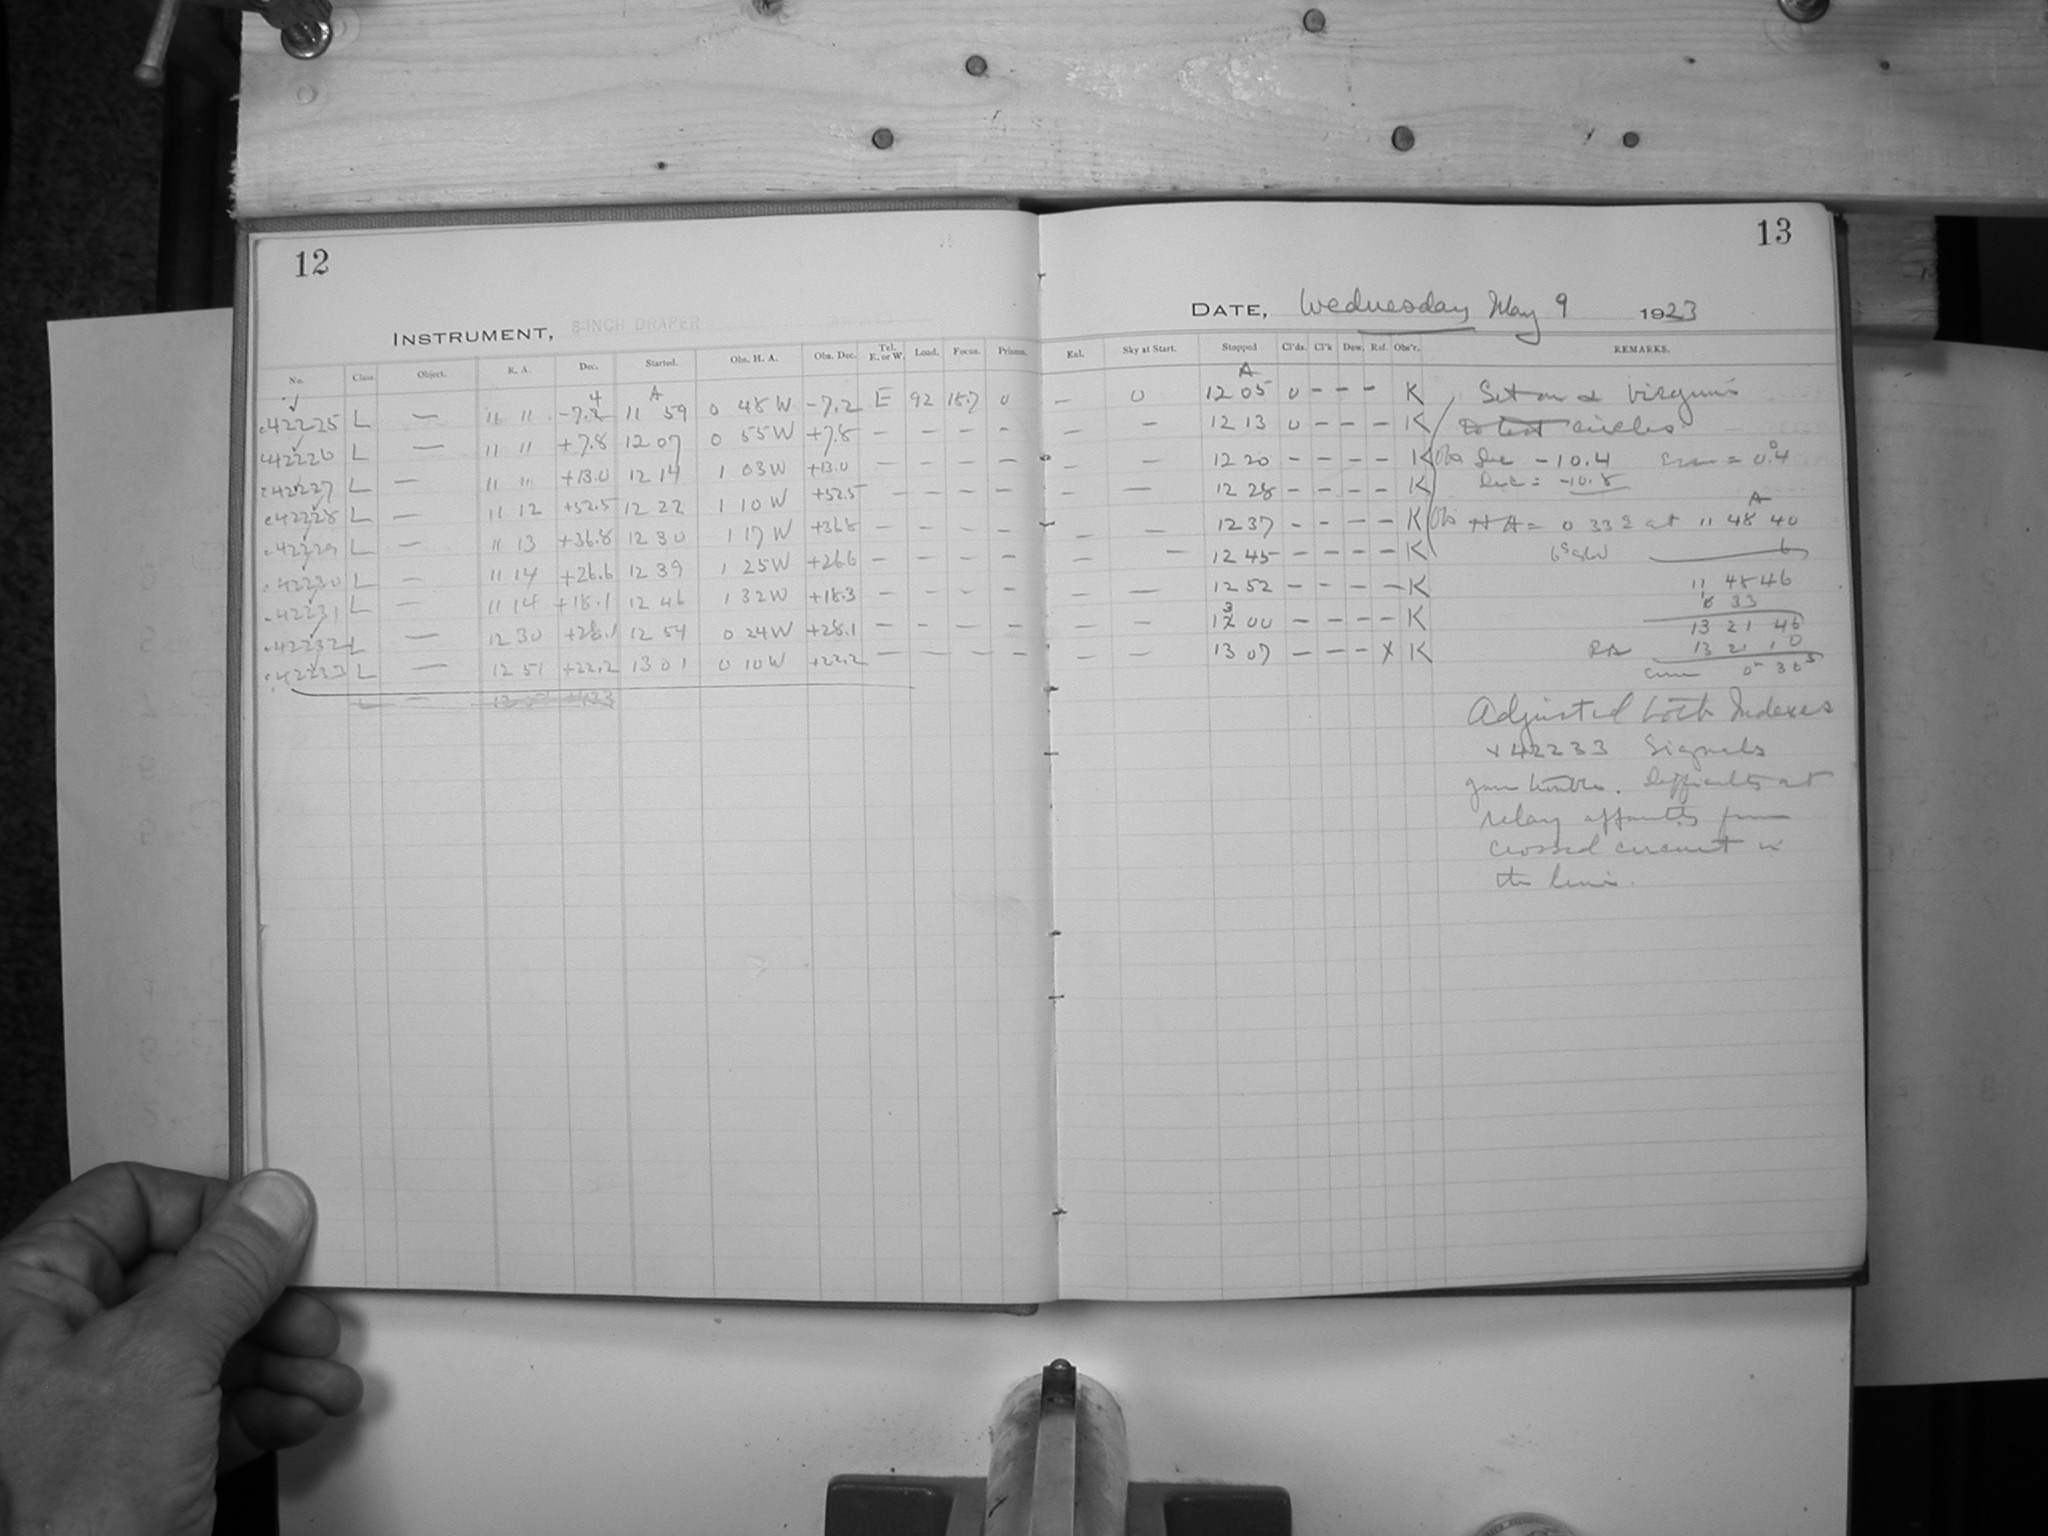 12
INSTRUMENT, 8-INCH DRAPER
No. Class. Object. R. A. Dec. Started. Obs. H. A. Obs. Dec. Tel. E. or W. Load. Focus. Prisms.
42225 L — 11 11 -7.2 4 11 A 59 0 48 W -7.2 E 92 18.7 0
42226 L — 11 11 +7.8 12 07 0 55 W +7.8 — — — —
42227 L — 11 11 +13.0 12 14 1 03 W +13.0 — — — —
42228 L — 11 12 +52.5 12 22 1 10 W +52.5 — — — —
42229 L — 11 13 +36.8 12 30 1 17 W +36.8 — — — —
42230 L — 11 14 +26.6 12 39 1 25 W +26.6 — — — —
42231 L — 11 14 +18.1 12 46 1 32 W +18.3 — — — —
42232 L — 12 30 +28.1 12 54 0 24 W +28.1 — — — —
42233 L — 12 51 +22.2 13 01 0 10 W +22.2 — — — —
L —
13
DATE, Wednesday May 9 1923
Enl. Sky at Start. Stopped Cl'ds. Cl'k Dew, Ref. Obs'r. REMARKS.
A
— 0 12 05 0 - - - K Set on α Virginis
— — 12 13 0 - - - K to test circles
— — 12 20 - - - - K Obs Dec -10.4 Error = 0.4
— — 12 28 - - - - K Dec = -10.8
— — 12 37 - - - - K Obs HA = 0 33 2 at 11 48 A 40
— — 12 45 - - - - K 6
— — 12 52 - - - - K 11 48 46
— — 13 00 - - - - K 33
13 21 46
— — 13 07 - - - X K RA 13 21 10
Adjusted both Indexes
x 42233 Signals
gave trouble. Difficulty at
relay apparently from
crossed circuit in
the line.